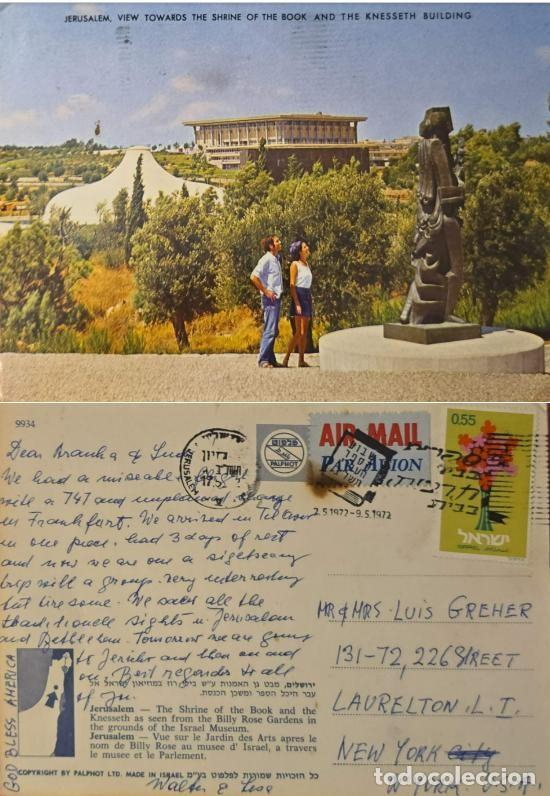 JERUSALEM, VIEW TOWARDS THE SHRINE OF THE BOOK AND THE KNESSETH BUILDING
9934
Dear Branka & Luis
We had a miserable flight
with a 747 and unplanned change
in Frankfurt. We arrived in Tel Aviv
in one piece, had 3 days of rest
and now we are on a sightseeing
trip with a group. Very interesting
but tiresome. We saw all the
traditionell sights in Jerusalem
and Bethlehem. Tomorrow we are going
to Jericho and then on and
on. Best regards to all
of you.
Walter & Lisa
GOD BLESS AMERICA
ירושלים, מבט גן האמנות ע״ש בילי רוז במוזיאון ישראל אל
עבר היכל הספר ומשכן הכנסת.
Jerusalem — The Shrine of the Book and the
Knesseth as seen from the Billy Rose Gardens in
the grounds of the Israel Museum.
Jerusalem — Vue sur le Jardin des Arts apres le
nom de Billy Rose au musee d' Israel, a travers
le musee et le Parlement.
COPYRIGHT BY PALPHOT LTD. MADE IN ISRAEL כל הזכויות שמורות לפלפוט בע״מ
JERUSALEM
ירושלים
פלפוט
PALPHOT
AIR MAIL
PAR AVION
שבוע
הספר
2.5.1972-9.5.1972
0.55
ישראל
ISRAEL
MR & MRS LUIS GREHER
131-72, 226 STREET
LAURELTON. L.I.
NEW YORK CITY
N. YORK U.S.A.
todocoleccion